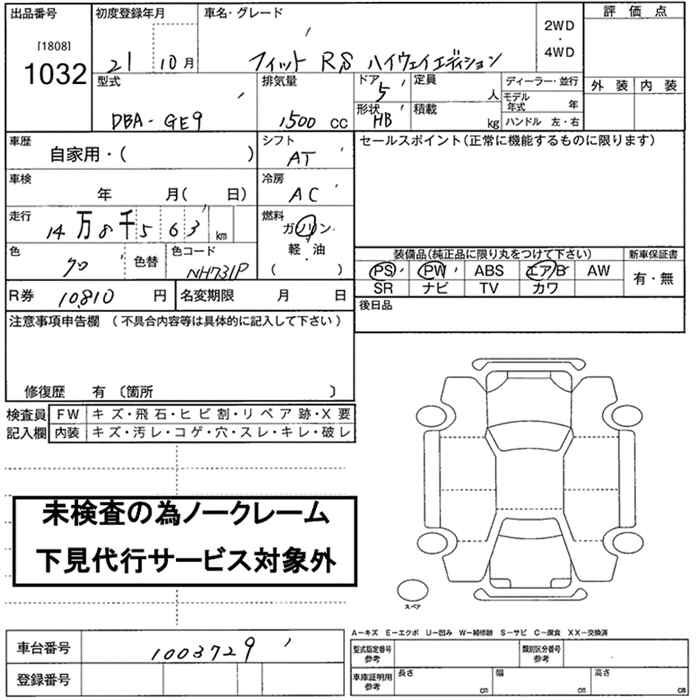 出品番号 初度登録年月 車名・グレード 評価点
[1808] 2WD ・ 4WD
1032 21 10月 フィット RS ハイウェイエディション
型式 排気量 ドア 5 定員 人 ディーラー・並行 外装 内装
モデル年式 年
DBA-GE9 1500 cc 形状 HB 積載 kg ハンドル 左・右
車歴 シフト セールスポイント(正常に機能するものに限ります)
自家用・( ) AT
車検 冷房
年 月( 日) AC
走行 燃料
14万8千563 km ガソリン
色 色替 色コード 軽・油
NH731P ( )
装備品(純正品に限り丸をつけて下さい) 新車保証書
PS PW ABS エアB AW 有・無
SR ナビ TV カワ
R券 10,810 円 名変期限 月 日 後日品
注意事項申告欄 (不具合内容等は具体的に記入して下さい)
修復歴 有 〔箇所 〕
検査員 FW キズ・飛石・ヒビ割・リペア跡・X要
記入欄 内装 キズ・汚レ・コゲ・穴・スレ・キレ・破レ
未検査の為ノークレーム
下見代行サービス対象外
スペア
A-キズ E-エクボ U-凹み W-補修跡 S-サビ C-腐食 XX-交換済
車台番号 1003729 型式指定番号 参考 類別区分番号 参考
登録番号 車庫証明用 参考 長さ cm 幅 cm 高さ cm